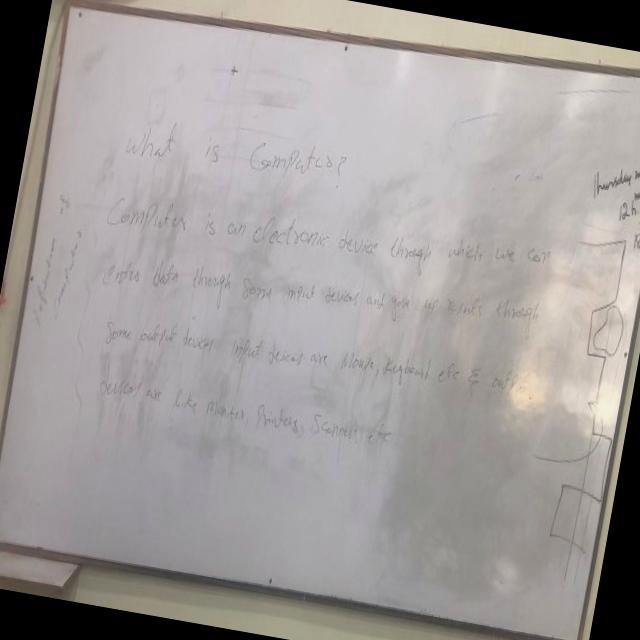 What is Computer?
Computer is an electronic device through which we can
enter data through some input device and give up results through
some output device input device are Mouse, Keyboard etc & output
device are like Monitor, Printers, Scanner etc